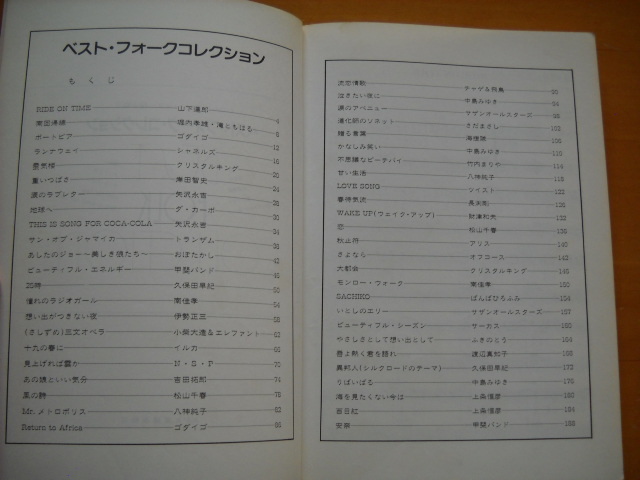 ベスト・フォークコレクション
もくじ
RIDE ON TIME 山下達郎 4
南回帰線 堀内孝雄・滝ともはる 6
ポートピア ゴダイゴ
ランナウェイ シャネルズ
蜃気楼 クリスタルキング
重いつばさ 岸田智史
涙のラブレター 矢沢永吉
地球へ ダ・カーポ
THIS IS SONG FOR COCA-COLA 矢沢永吉
サン・オブ・ジャマイカ トランザム
あしたのジョー〜美しき狼たち〜 おぼたけし
ビューティフル・エネルギー 甲斐バンド
25時 久保田早紀
憧れのラジオガール 南佳孝
想い出がつきない夜 伊勢正三
(さしずめ)三文オペラ 小柴大造&エレファント
十九の春に イルカ
見上げれば雲か N・S・P
あの娘といい気分 吉田拓郎 74
風の詩 松山千春 78
Mr.メトロポリス 八神純子 82
Return to Africa ゴダイゴ 86
流恋情歌 チャゲ&飛鳥
泣きたい夜に 中島みゆき
涙のアベニュー サザンオールスターズ
道化師のソネット さだまさし 102
贈る言葉 海援隊
かなしみ笑い 中島みゆき
不思議なピーチパイ 竹内まりや
甘い生活 八神純子
LOVE SONG ツイスト
春待気流 長渕剛
WAKE UP(ウェイク・アップ) 財津和夫 132
恋 松山千春
秋止符 アリス
さよなら オフコース
大都会 クリスタルキング
モンロー・ウォーク 南佳孝 150
SACHIKO ばんばひろふみ 154
いとしのエリー サザンオールスターズ 157
ビューティフル・シーズン サーカス
やさしさとして想い出として ふきのとう
唇よ熱く君を語れ 渡辺真知子
異邦人(シルクロードのテーマ) 久保田早紀
りばいばる 中島みゆき
海を見たくない今は 上条恒彦
百日紅 上条恒彦 184
安奈 甲斐バンド 188